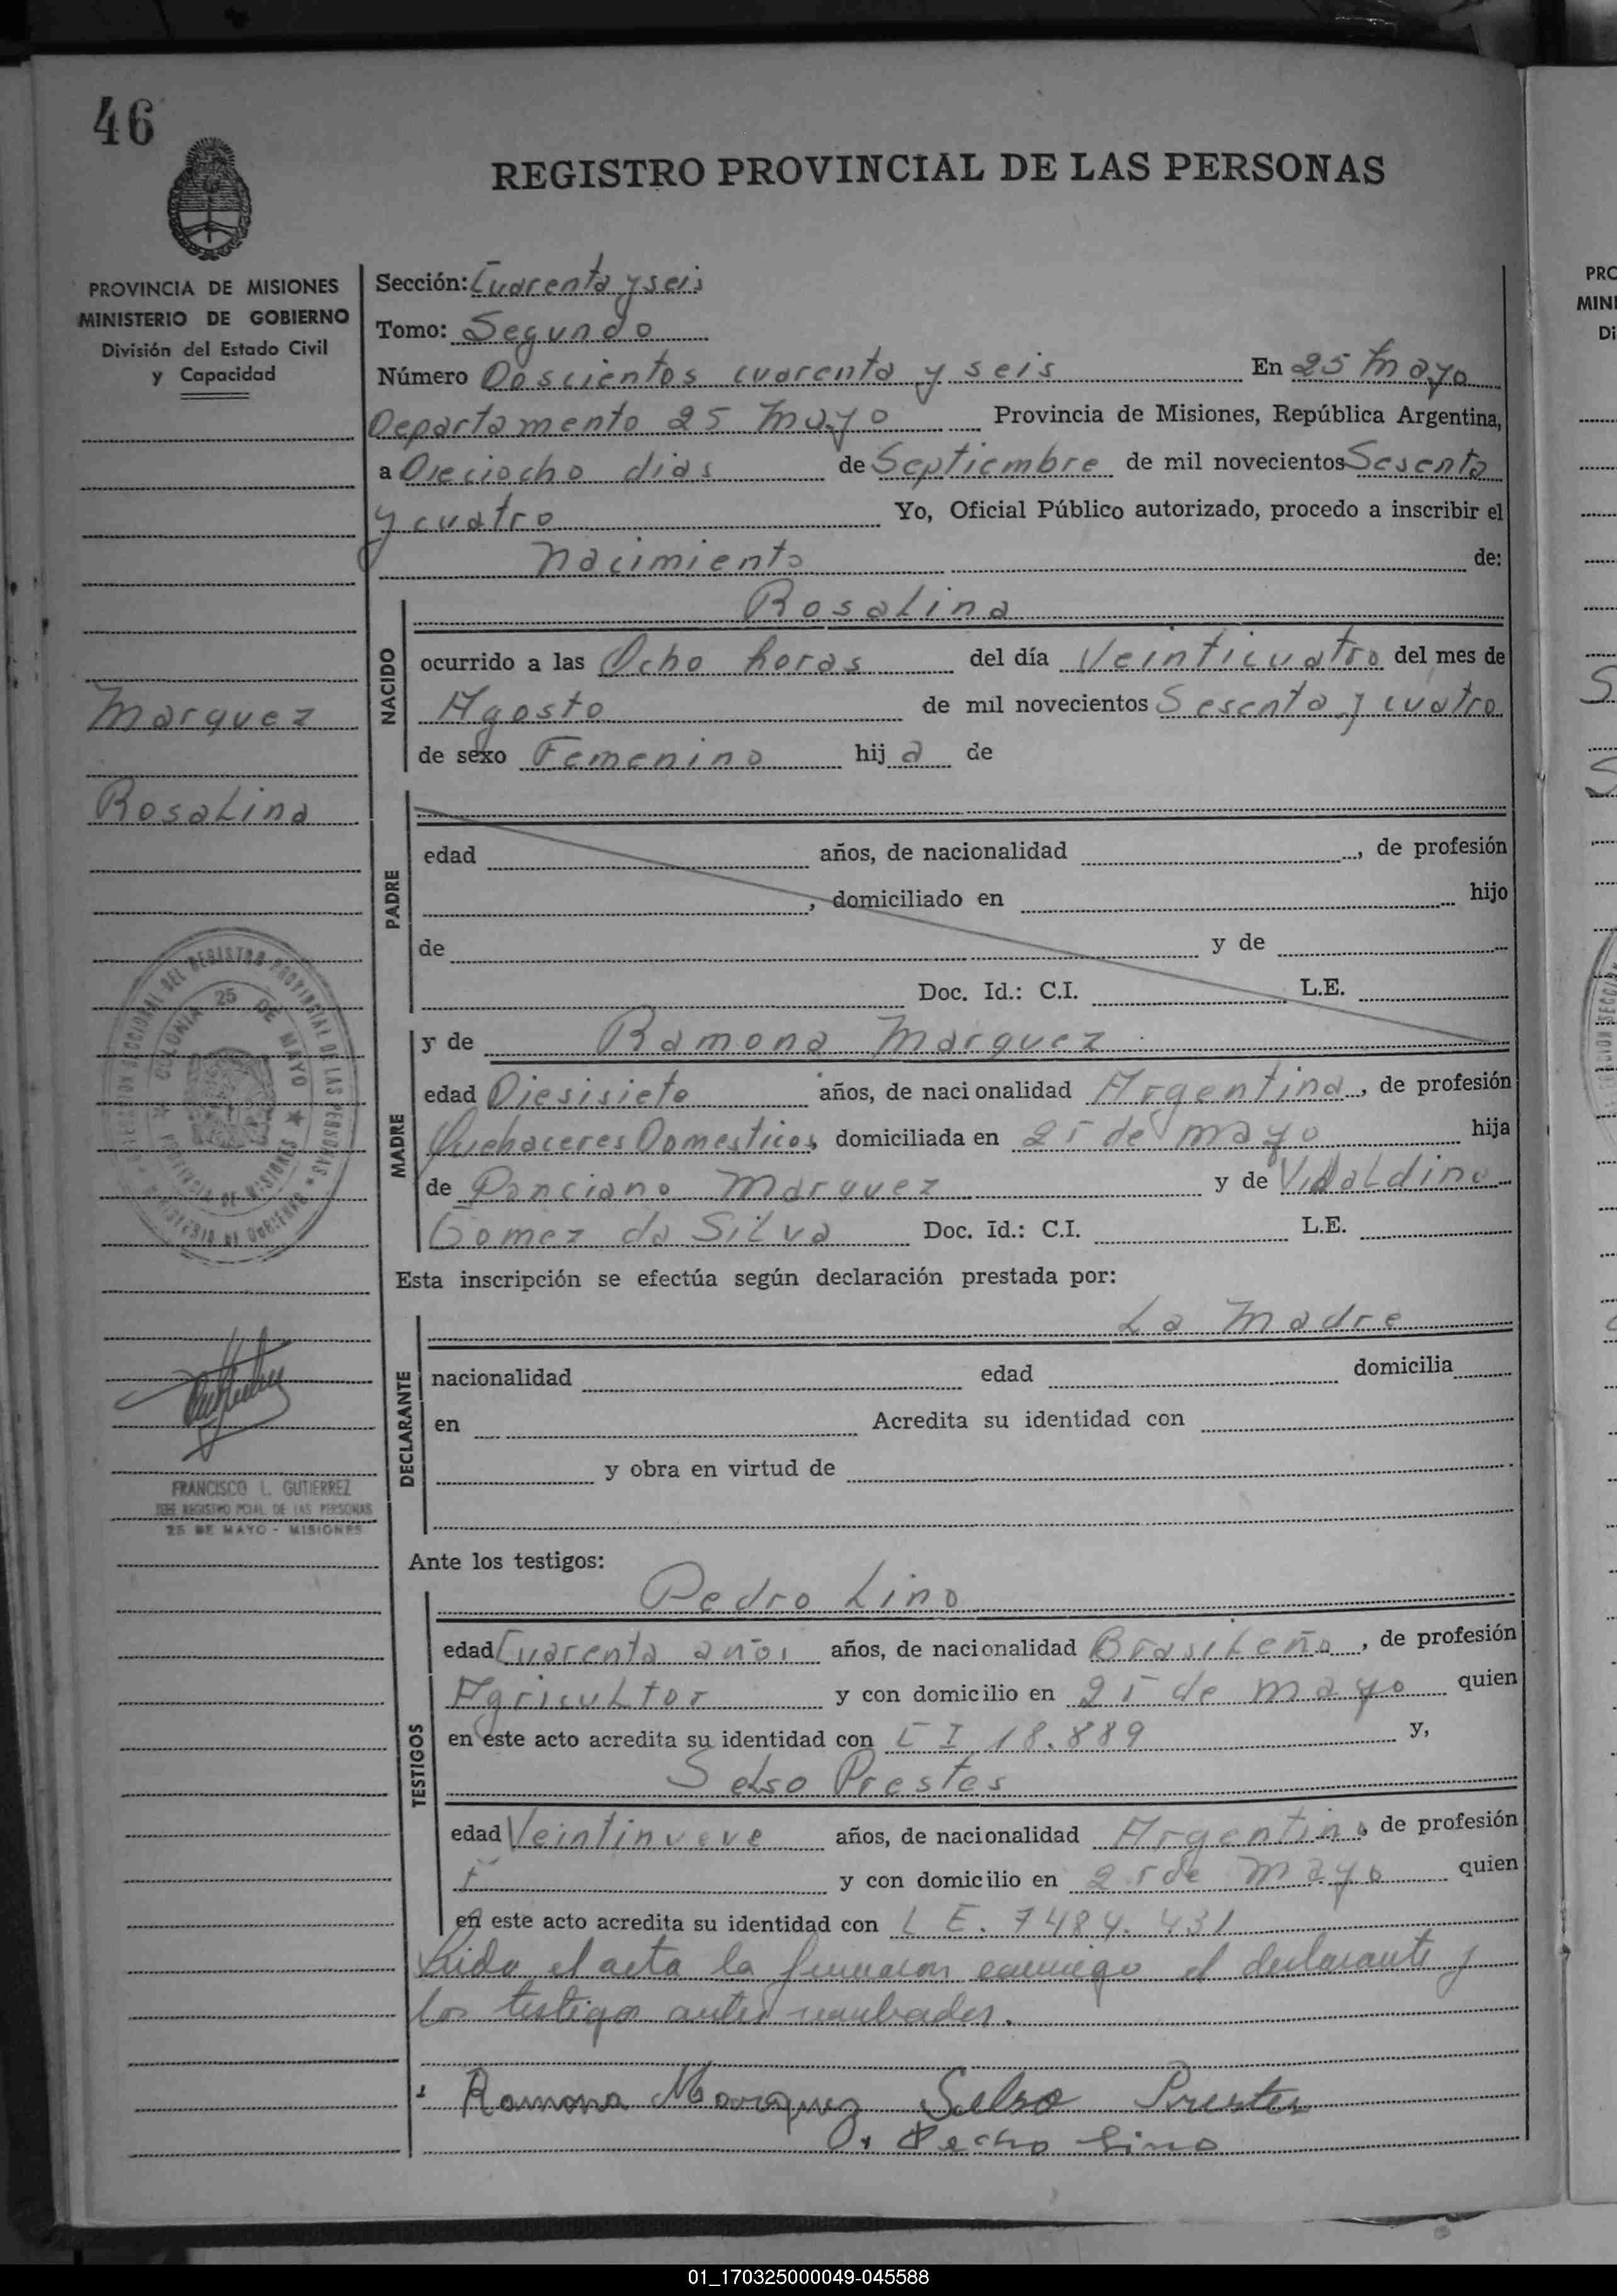 46
REGISTRO PROVINCIAL DE LAS PERSONAS
PROVINCIA DE MISIONES
MINISTERIO DE GOBIERNO
División del Estado Civil
y Capacidad
Marquez
Rosalina
COLONIA 25 DE MAYO
PROVINCIA DE MISIONES
FRANCISCO L. GUTIERREZ
JEFE REGISTRO PCIAL DE LAS PERSONAS
25 DE MAYO - MISIONES
Sección: Cuarenta y seis
Tomo: Segundo
Número Doscientos cuarenta y seis En 25 Mayo
Departamento 25 Mayo Provincia de Misiones, República Argentina,
a Dieciocho dias de Septiembre de mil novecientos Sesenta
y cuatro Yo, Oficial Público autorizado, procedo a inscribir el
Nacimiento de:
NACIDO
Rosalina
ocurrido a las Ocho horas del día Veinticuatro del mes de
Agosto de mil novecientos Sesenta y cuatro
de sexo Femenino hija de
PADRE
edad años, de nacionalidad , de profesión
, domiciliado en hijo
de y de
Doc. Id.: C.I. L.E.
MADRE
y de Ramona Marquez
edad Diesisiete años, de nacionalidad Argentina, de profesión
Quehaceres Domesticos, domiciliada en 25 de mayo hija
de Ponciano Marquez y de Vidaldina
Gomez da Silva Doc. Id.: C.I. L.E.
Esta inscripción se efectúa según declaración prestada por:
DECLARANTE
La Madre
nacionalidad edad domicilia
en Acredita su identidad con
y obra en virtud de
Ante los testigos:
TESTIGOS
Pedro Lino
edad Cuarenta años años, de nacionalidad Brasileña, de profesión
Agricultor y con domicilio en 25 de mayo quien
en este acto acredita su identidad con C I 18.889 y,
Selso Prestes
edad Veintinueve años, de nacionalidad Argentina, de profesión
y con domicilio en 25 de mayo quien
en este acto acredita su identidad con L E. 7484.431
Leida el acta la firmaron conmigo el declarante y
los testigo antes nombrados.
Ramona Marquez Selso Prestes
Pedro Lino
01_170325000049-045588